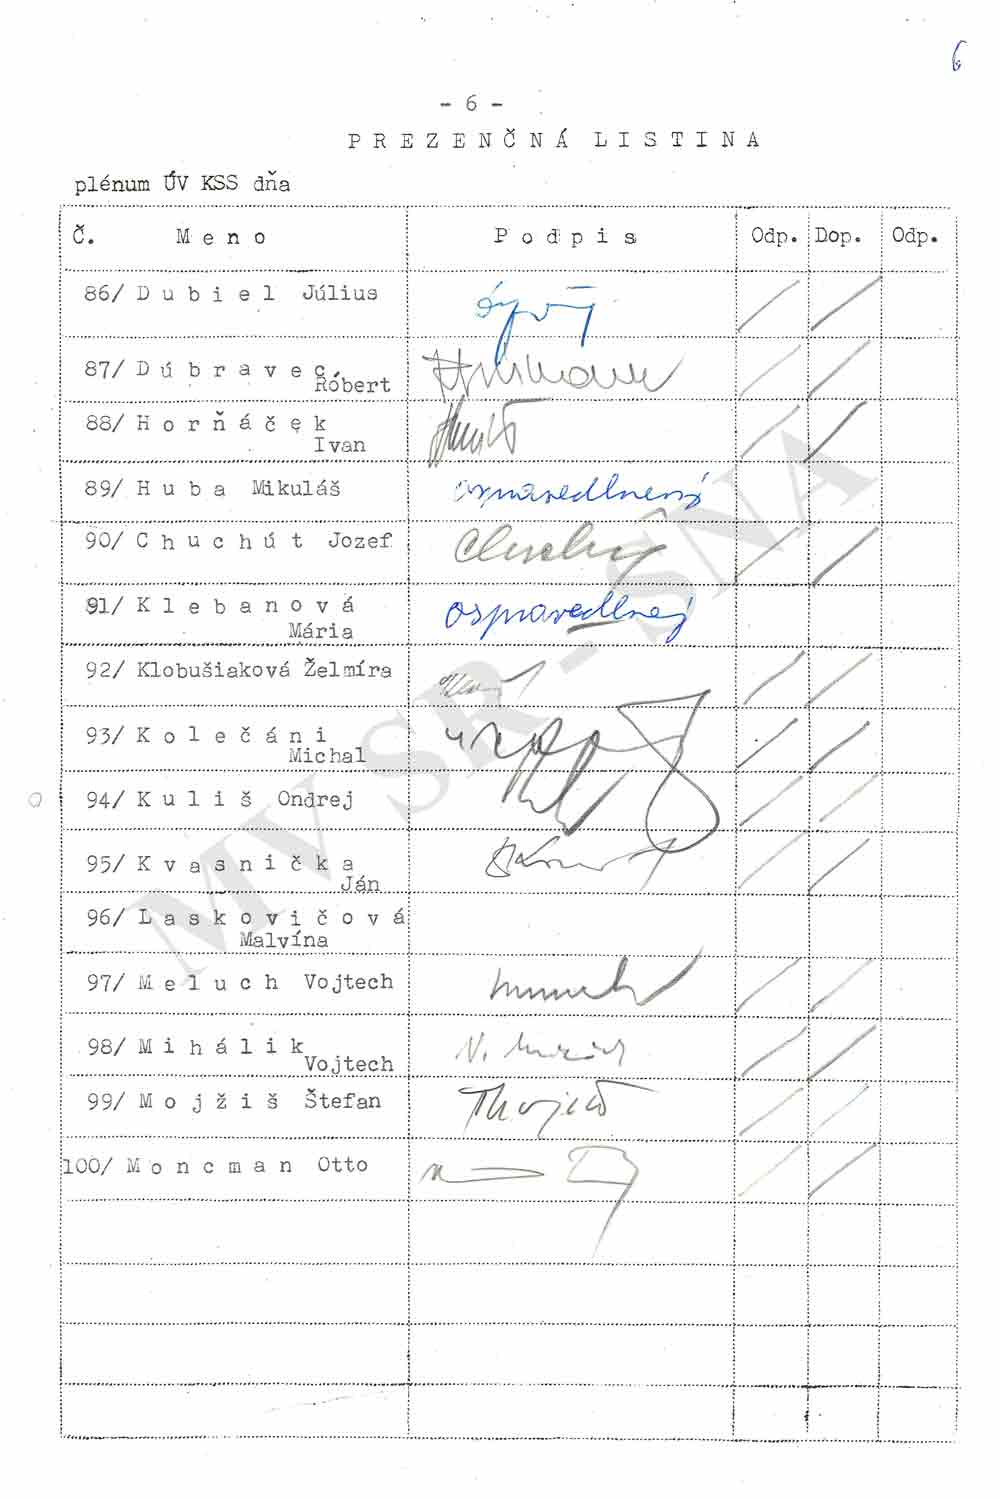 6
- 6 -
PREZENČNÁ LISTINA
plénum ÚV KSS dňa
Č. Meno Podpis Odp. Dop. Odp.
86/ Dubiel Július
87/ Dúbravec Róbert
88/ Horňáček Ivan
89/ Huba Mikuláš ospravedlnený
90/ Chuchút Jozef
91/ Klebanová Mária ospravedlnej
92/ Klobušiaková Želmíra
93/ Kolečáni Michal
94/ Kuliš Ondrej
95/ Kvasnička Ján
96/ Laskovičová Malvína
97/ Meluch Vojtech
98/ Mihálik Vojtech
99/ Mojžiš Štefan
100/ Moncman Otto
MV SR - SNA